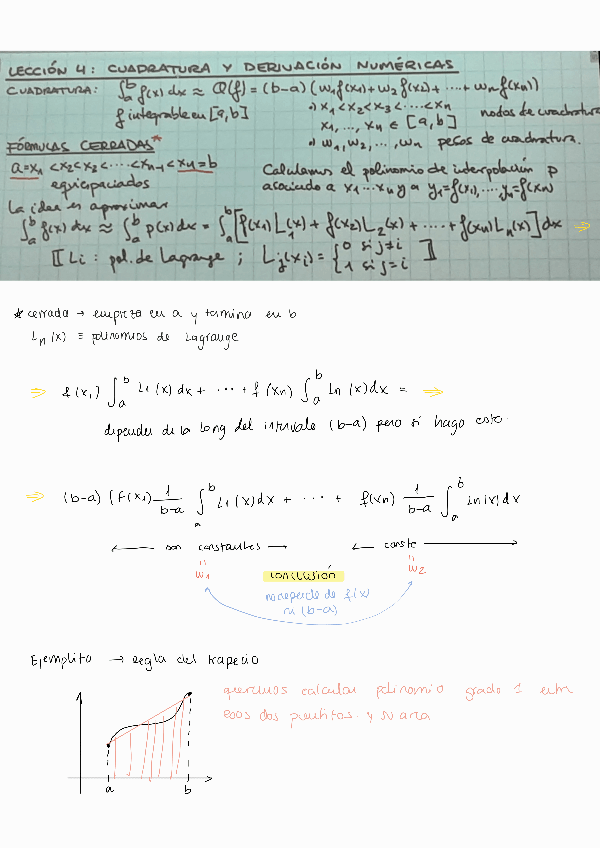 LECCIÓN 4: CUADRATURA Y DERIVACIÓN NUMÉRICAS
CUADRATURA: ∫_a^b f(x) dx ≈ Q(f) = (b-a) (w₁f(x₁)+w₂f(x₂)+ ··· +wₙf(xₙ))
f integrable en [a,b]
x₁<x₂<x₃<····<xₙ nodos de cuadratura
x₁,..., xₙ ∈ [a,b]
w₁, w₂, ..., wₙ pesos de cuadratura.
FÓRMULAS CERRADAS*
a=x₁ <x₂<x₃<····<xₙ₋₁<xₙ=b
equiespaciados
Calculamos el polinomio de interpolación p
asociado a x₁···xₙ y a y₁=f(x₁),····,yₙ=f(xₙ)
La idea es aproximar
∫_a^b f(x) dx ≈ ∫_a^b p(x) dx = ∫_a^b [f(x₁)L₁(x) + f(x₂)L₂(x) + ···· + f(xₙ)Lₙ(x)] dx ⇒
⟦ Li : pol. de Lagrange ; Lⱼ(xᵢ) = { 0 si j≠i 1 si j=i ⟧
* cerrada → empieza en a y termina en b
Lₙ(x) ≡ polinomios de Lagrange
⇒ f(x₁) ∫_a^b L₁(x) dx + ··· + f(xₙ) ∫_a^b Lₙ(x) dx = ⇒
depender de la long del intervalo (b-a) pero si hago esto.
⇒ (b-a) (f(x₁) 1/(b-a) ∫_a^b L₁(x) dx + ··· + f(xₙ) 1/(b-a) ∫_a^b Lₙ(x) dx
← son constantes → ← conste →
= w₁ conclusión = w₂
no depende de f(x)
ni (b-a)
Ejemplito → regla del trapecio
queremos calcular polinomio grado 1 entre
esos dos puntitos y su area
a b